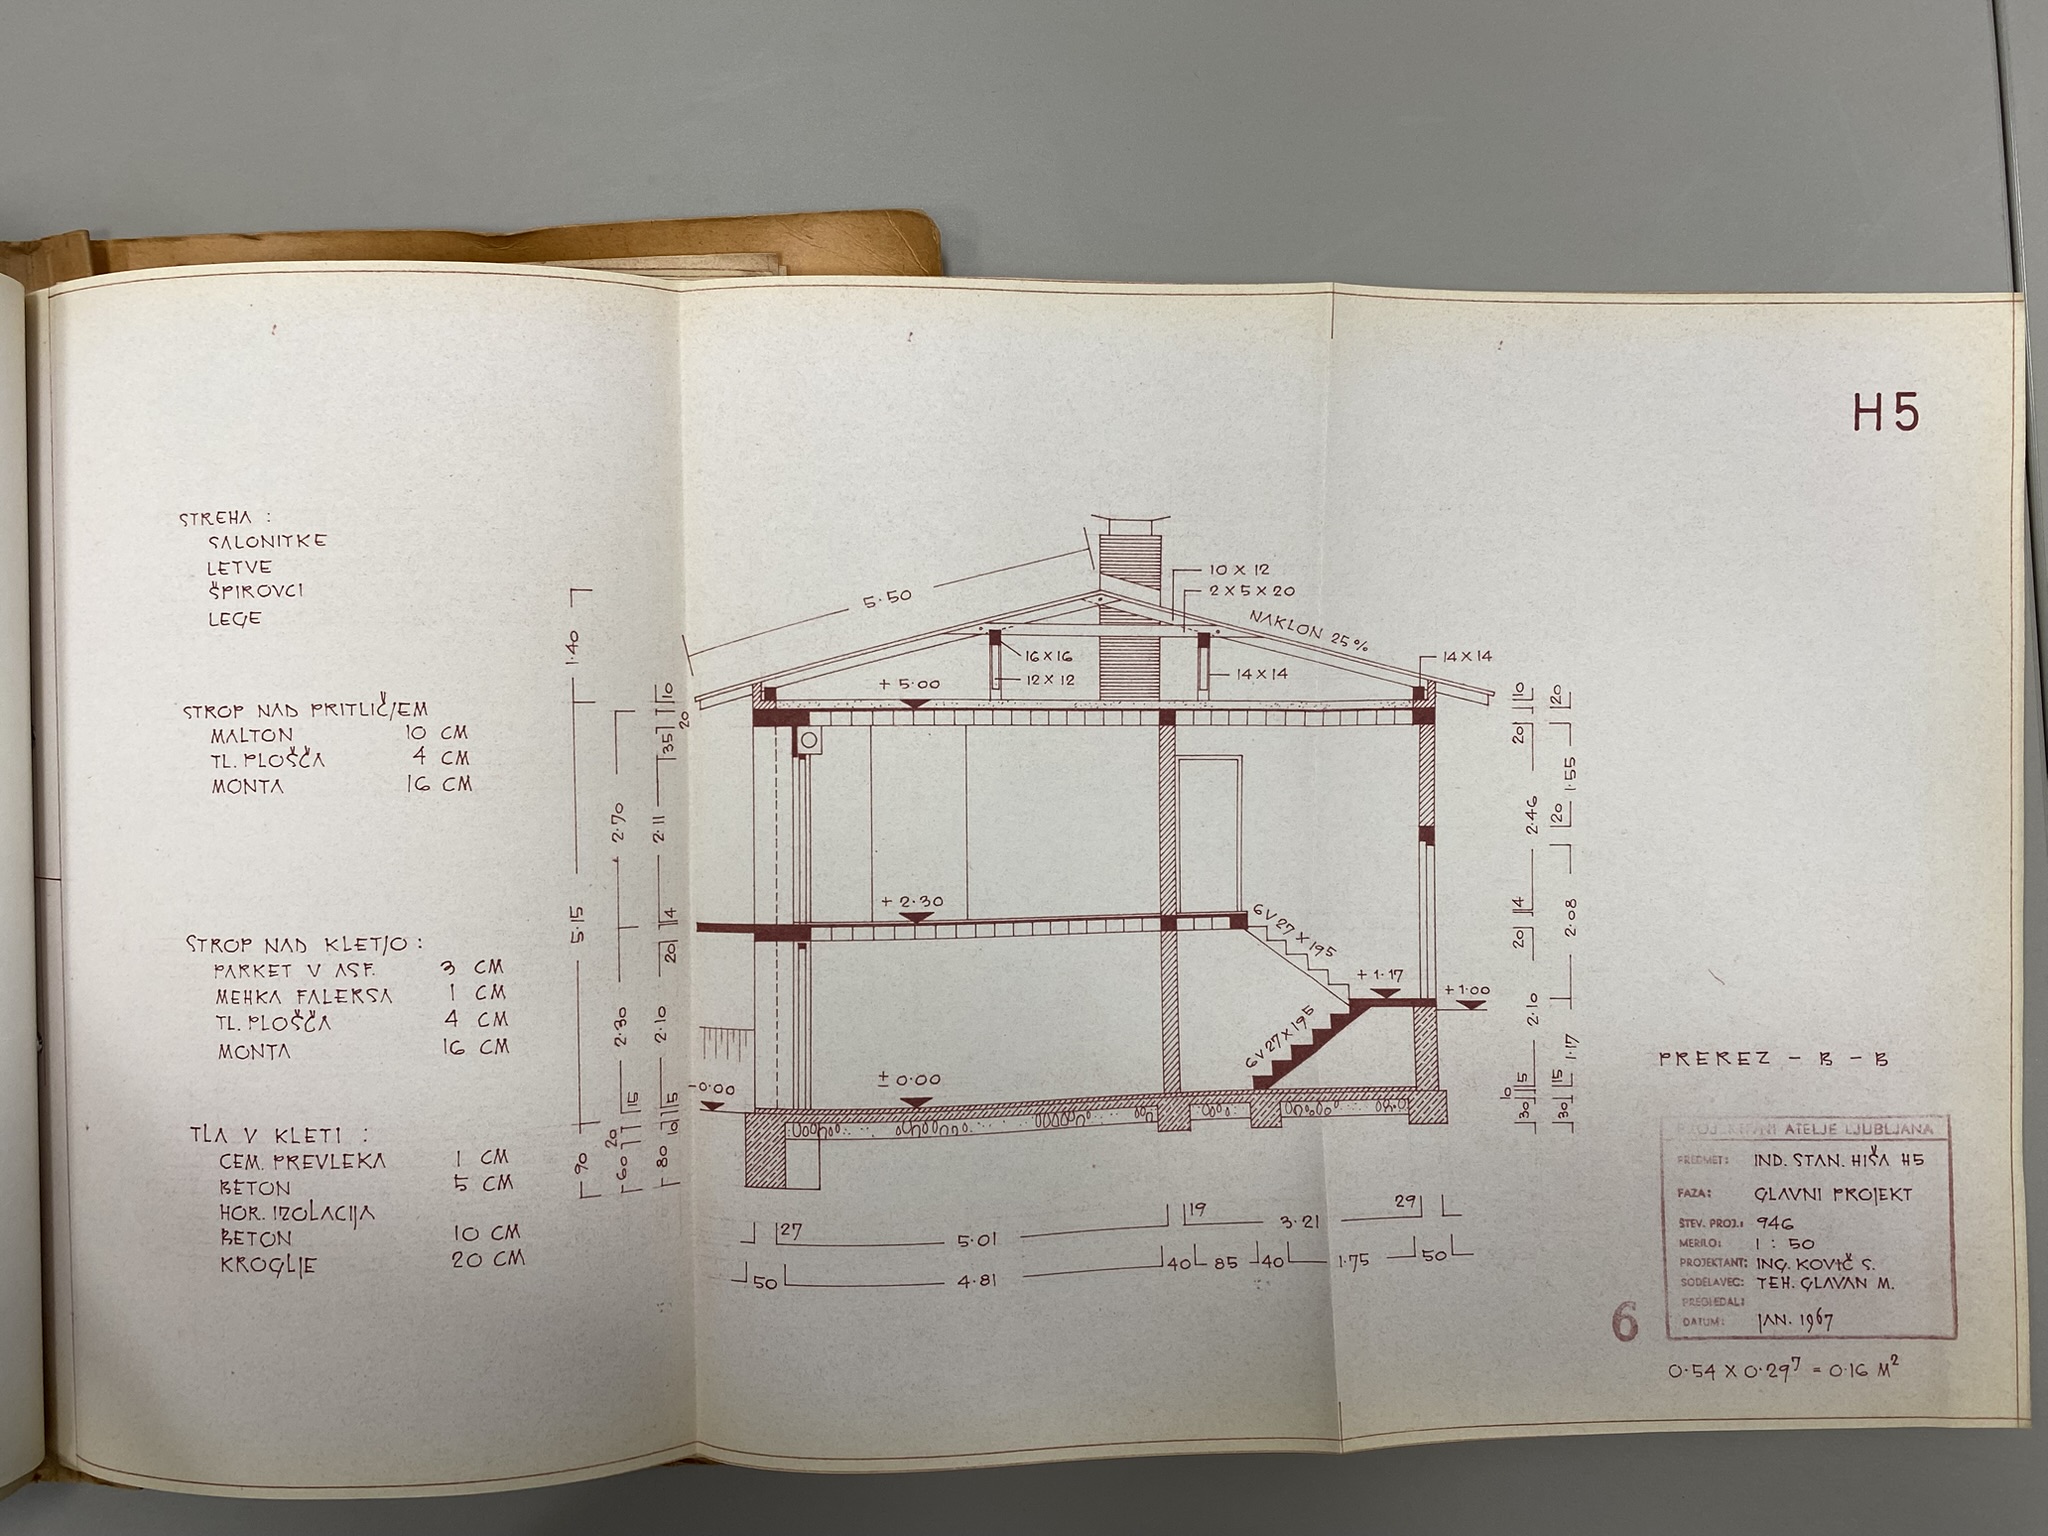 H5
STREHA :
SALONITKE
LETVE
ŠPIROVCI
LEGE
STROP NAD PRITLIČJEM
MALTON 10 CM
TL. PLOŠČA 4 CM
MONTA 16 CM
STROP NAD KLETJO :
PARKET V ASF. 3 CM
MEHKA FALERSA 1 CM
TL. PLOŠČA 4 CM
MONTA 16 CM
TLA V KLETI :
CEM. PREVLEKA 1 CM
BETON 5 CM
HOR. IZOLACIJA
BETON 10 CM
KROGLJE 20 CM
1.40
5.15
90
2.70
2.30
15
20
60
10
20
35
2.11
4
20
2.10
5
10
80
5.50
10 X 12
2 X 5 X 20
NAKLON 25%
16 X 16
12 X 12
14 X 14
14 X 14
+ 5.00
+ 2.30
6 V 27 X 195
+ 1.17
+ 1.00
6 V 27 X 195
± 0.00
-0.00
10
20
2.46
4
20
2.10
5
10
30
20
1.55
20
2.08
1.17
15
30
27 5.01 19 3.21 29
50 4.81 40 85 40 1.75 50
PREREZ - B - B
PROJEKTIVNI ATELJE LJUBLJANA
PREDMET: IND. STAN. HIŠA H5
FAZA: GLAVNI PROJEKT
ŠTEV. PROJ.: 946
MERILO: 1 : 50
PROJEKTANT: ING. KOVIČ S.
SODELAVEC: TEH. GLAVAN M.
PREGLEDAL:
DATUM: JAN. 1967
6
0.54 X 0.29⁷ = 0.16 M²